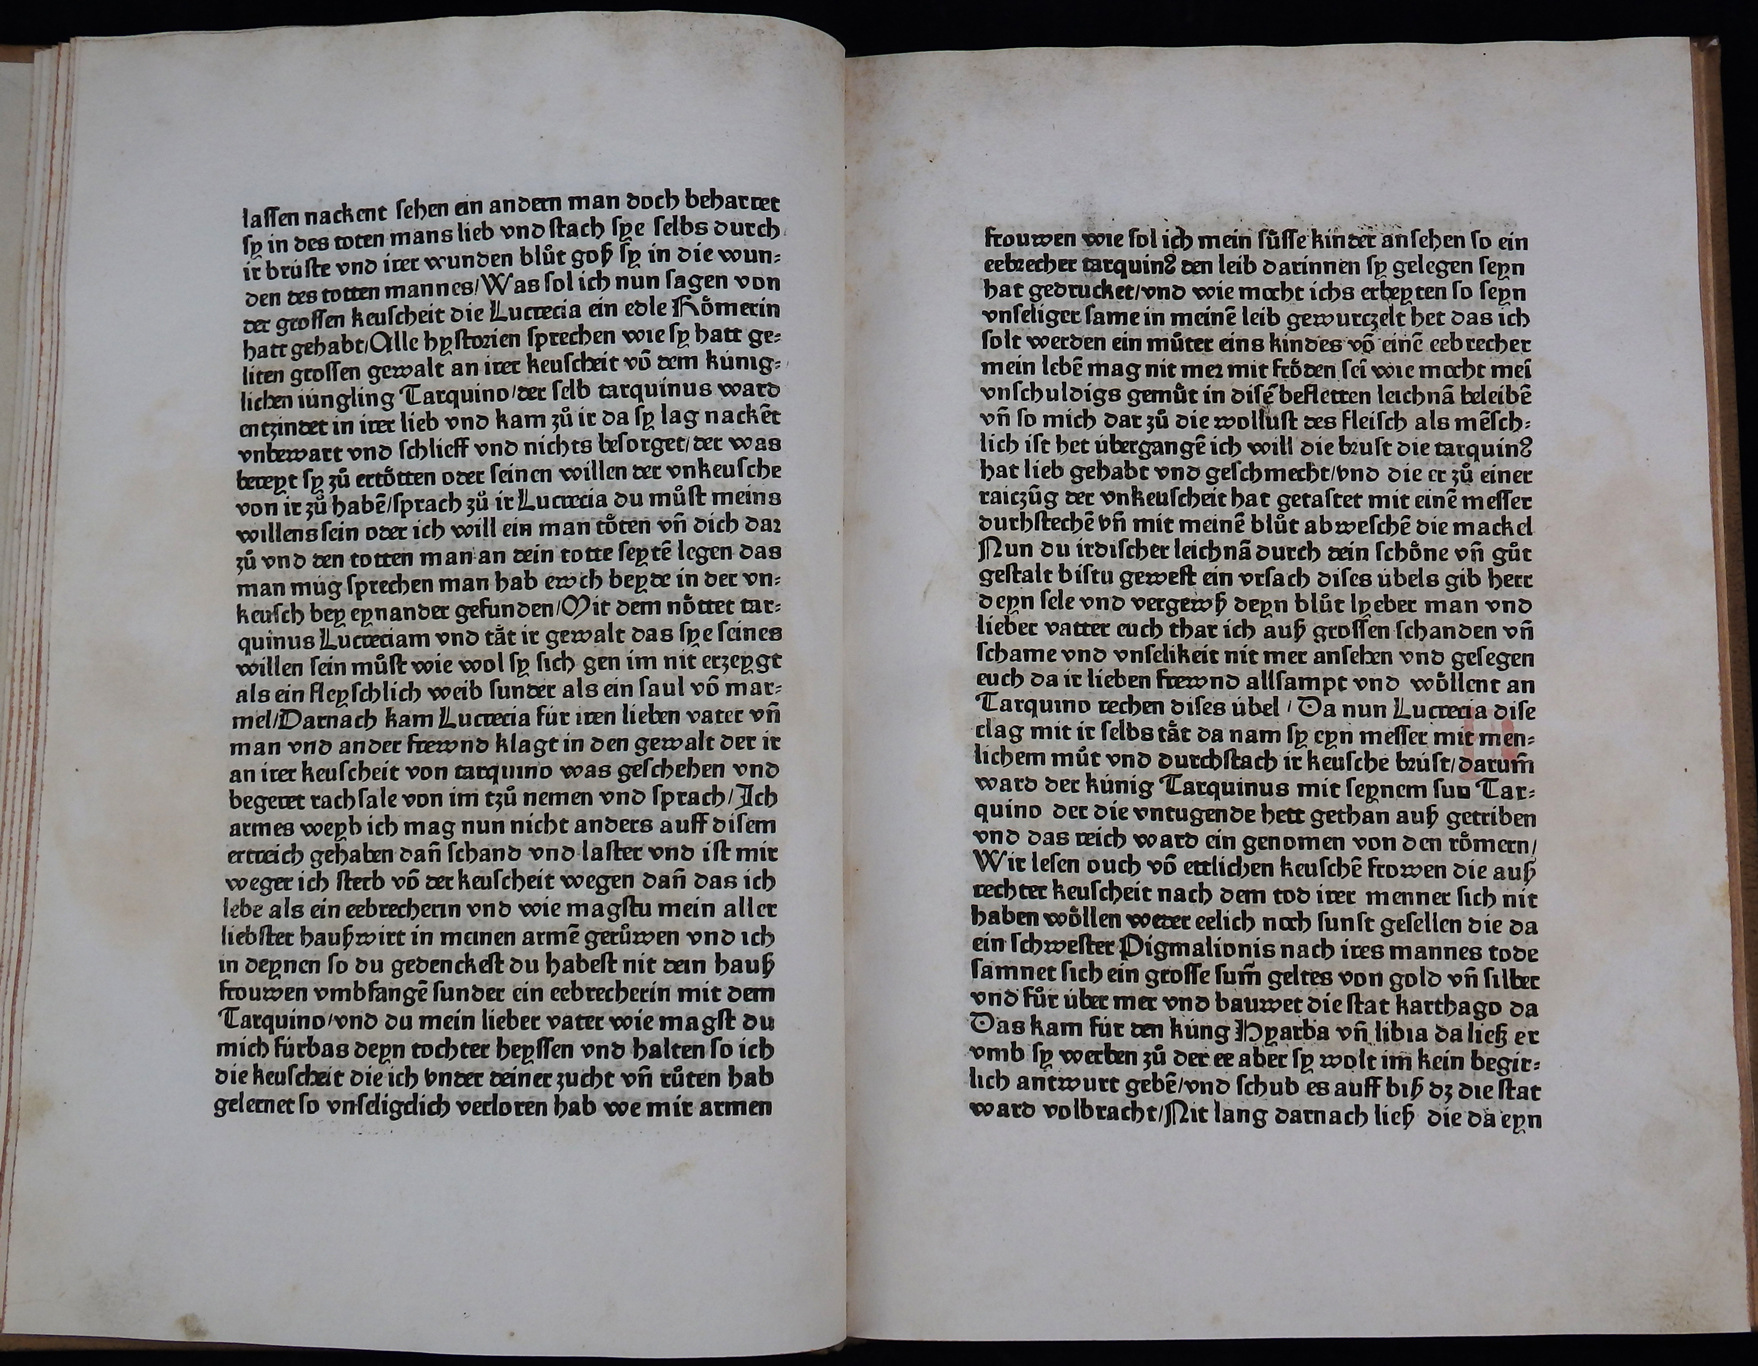 lassen nackent sehen ein andern man doch beharret
sy in des toten mans lieb vnd stach sye selbs durch
ir brúste vnd irer wunden blůt goß sy in die wun⸗
den des totten mannes/Was sol ich nun sagen von
der grossen keuscheit die Lucrecia ein edle Rőmerin
hatt gehabt/Alle hystorien sprechen wie sy hatt ge⸗
liten grossen gewalt an irer keuscheit vō dem kúnig⸗
lichen iúngling Tarquino/der selb tarquinus ward
entzindet in irer lieb vnd kam zů ir da sy lag nackēt
vnbewart vnd schlieff vnd nichts besorget/der was
bereyt sy zů ertőtten oder seinen willen der vnkeusche
von ir zů habē/sprach zů ir Lucrecia du můst meins
willens sein oder ich will ein man tőten vn̄ dich dar
zů vnd den totten man an dein totte seytē legen das
man múg sprechen man hab ewch beyde in der vn⸗
keusch bey eynander gefunden/Mit dem nőttet tar⸗
quinus Lucreciam vnd tåt ir gewalt das sye seines
willen sein můst wie wol sy sich gen im nit erzeygt
als ein fleyschlich weib sunder als ein saul vō mar⸗
mel/Darnach kam Lucrecia fúr iren lieben vater vn̄
man vnd ander frewnd klagt in den gewalt der ir
an irer keuscheit von tarquino was geschehen vnd
begeret rachsale von im tzů nemen vnd sprach/Ich
armes weyb ich mag nun nicht anders auff disem
ertreich gehaben dan̄ schand vnd laster vnd ist mir
weger ich sterb vō der keuscheit wegen dan̄ das ich
lebe als ein eebrecherin vnd wie magstu mein aller
liebster haußwirt in meinen armē gerůwen vnd ich
in deynen so du gedenckest du habest nit dein hauß
frouwen vmbfangē sunder ein eebrecherin mit dem
Tarquino/vnd du mein lieber vater wie magst du
mich fúrbas deyn tochter heyssen vnd halten so ich
die keuscheit die ich vnder deiner zucht vn̄ růten hab
gelernet so vnseligclich verloren hab we mir armen
frouwen wie sol ich mein sůsse kinder ansehen so ein
eebrecher tarquinꝰ den leib darinnen sy gelegen seyn
hat gedrucket/vnd wie mocht ichs erbeyten so seyn
vnseliger same in meinē leib gewurczelt het das ich
solt werden ein můter eins kindes vō einē eebrecher
mein lebē mag nit mer mit frőden sei̅ wie mocht mei̅
vnschuldigs gemůt in disē befleckten leichnā beleibē
vn̄ so mich dar zů die wollust des fleisch als mēsch⸗
lich ist het úbergangē ich will die brust die tarquinꝰ
hat lieb gehabt vnd geschmecht/vnd die er zů einer
raiczūg der vnkeuscheit hat getastet mit einē messer
durhstechē vn̄ mit meinē blůt abweschē die mackel
Nun du irdischer leichnā durch dein schőne vn̄ gůt
gestalt bistu gewest ein vrsach dises úbels gib herr
deyn sele vnd vergewß deyn blůt lyeber man vnd
lieber vatter euch thar ich auß grossen schanden vn̄
schame vnd vnselikeit nit mer ansehen vnd gesegen
euch da ir lieben frewnd allsampt vnd wőllent an
Tarquino rechen dises úbel/Da nun Lucrecia dise
clag mit ir selbs tåt da nam sy eyn messer mit men⸗
lichem můt vnd durchstach ir keusche brúst/darum̄
ward der kúnig Tarquinus mit seynem sun Tar⸗
quino der die vntugende hett gethan auß getriben
vnd das reich ward ein genomen von den rőmern/
Wir lesen ouch vō ettlichen keuschē frowen die auß
rechter keuscheit nach dem tod irer menner sich nit
haben wőllen weder eelich noch sunst gesellen die da
ein schwester Pigmalionis nach ires mannes tode
samnet sich ein grosse sum̄ geltes von gold vn̄ silber
vnd fůr úber mer vnd bauwet die stat karthago da
Das kam fúr den kúng Hyarba vn̄ libia da ließ er
vmb sy werben zů der ee aber sy wolt im kein begir⸗
lich antwurt gebē/vnd schub es auff biß dz die stat
ward volbracht/Nit lang darnach ließ die da eyn